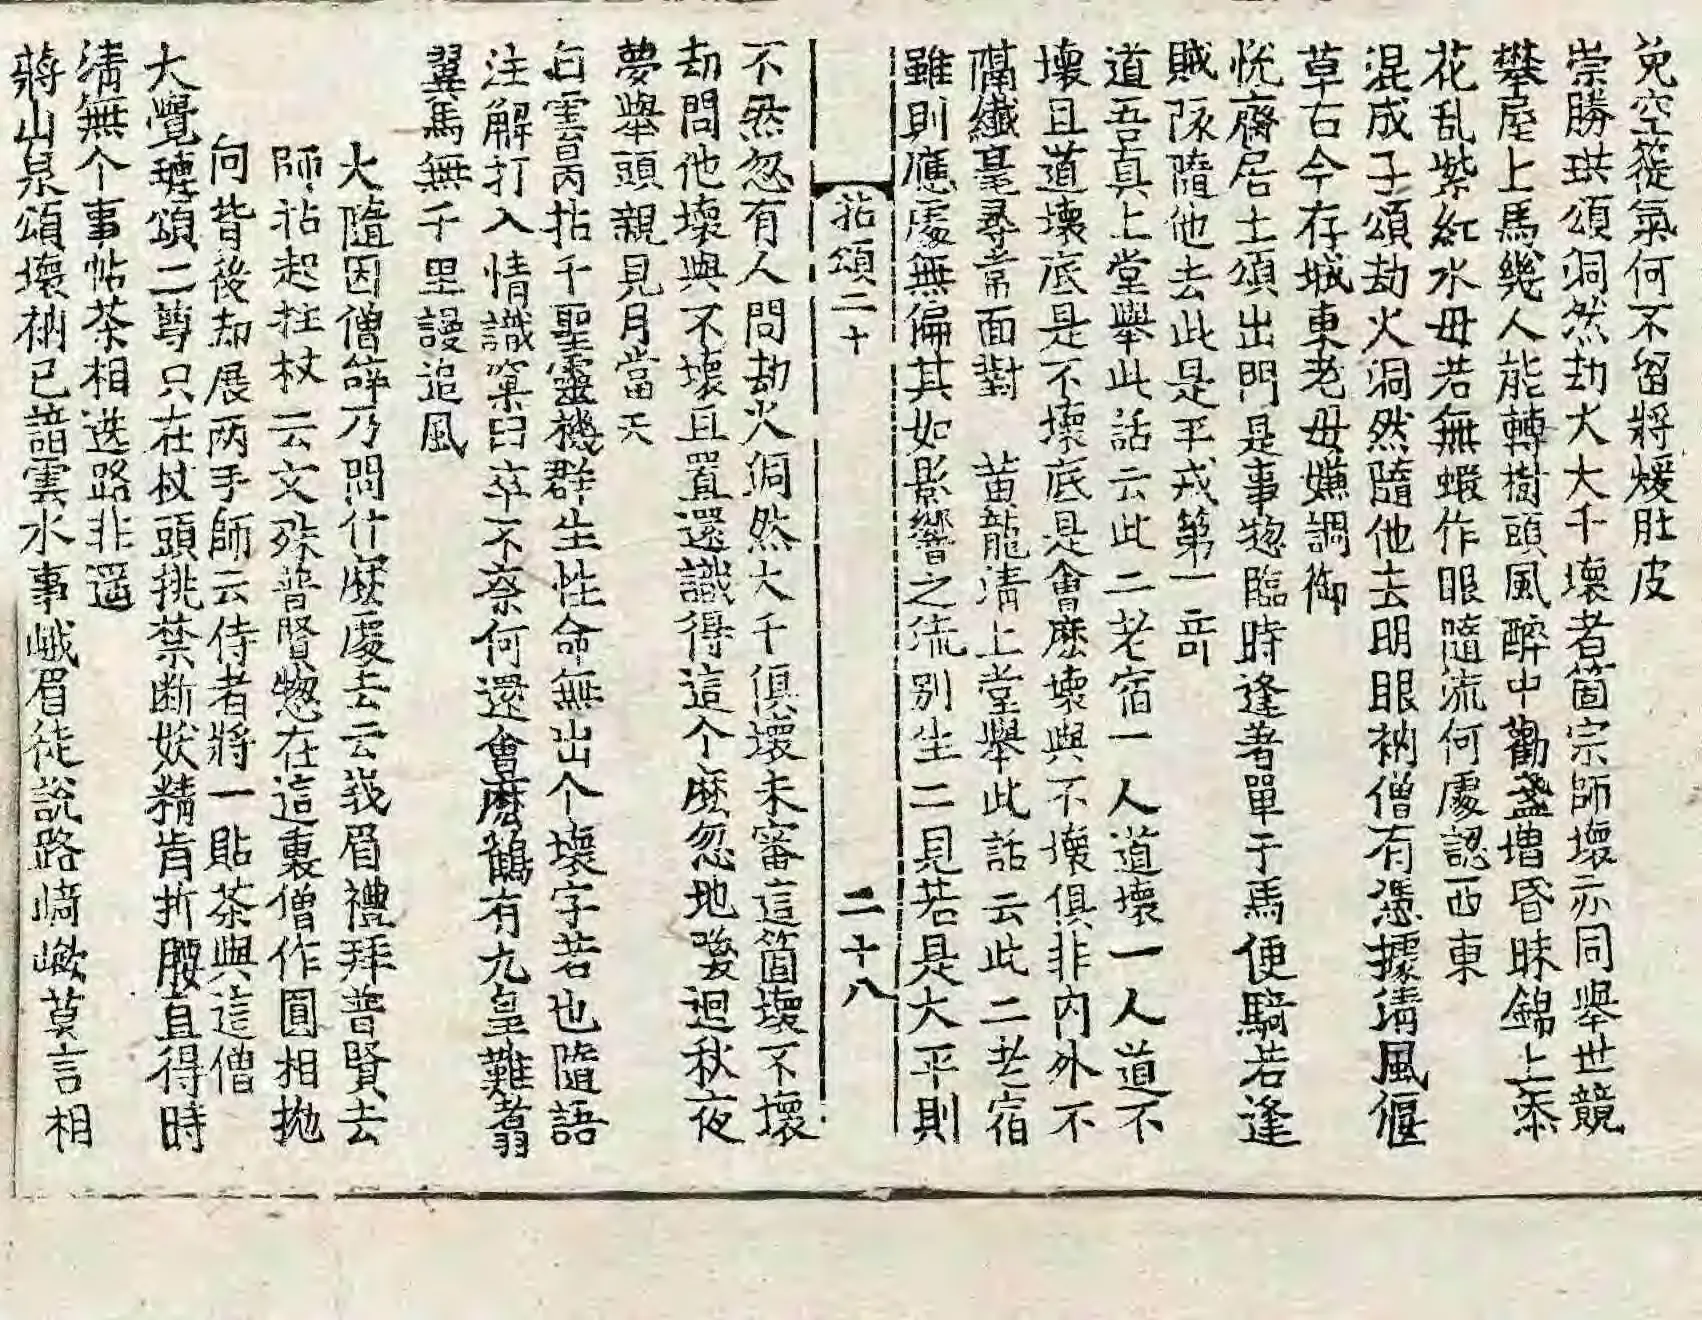 免空蓯氣何不留將煖肚皮
崇勝珙頌洞然劫大大千壞者箇宗師壞亦同舉世競
攀屋上馬幾人能轉樹頭風醉中勸盞增昏昧錦上添
花乱紫紅水母若無蝦作眼隨流何處認西東
混成子頌劫火洞然隨他去明眼衲僧有憑據清風偃
草古今存城東老母嫌調御
恱齋居士頌出門是事惣臨時逢着單于馬便騎若逢
賊隊隨他去此是平戎第一哥
道吾真上堂舉此話云此二老宿一人道壞一人道不
壞且道壞底是不壞底是會麽壞與不壞俱非內外不
隔纖毫尋常面對 黃龍清上堂舉此話云此二老宿
雖則應處無偏其如影響之流別生二見若是大平則
拈頌二十 二十八
不然忽有人問劫火洞然大千俱壞未審這箇壞不壞
劫問他壞與不壞且置還識得這个麽忽地唆迴秋夜
夢舉頭親見月當天
白雲昺拈千聖靈機群生性命無出个壞字若也隨語
注解打入情識窠臼卒不柰何還會麽鶴有九皐難翥
翼馬無千里謾追風
大隨因僧辞乃問什麽處去云峩眉禮拜普賢去
師拈起拄杖云文殊普賢惣在這裏僧作圓相抛
向背後却展两手師云侍者將一貼茶與這僧
大覺璉頌二尊只在杖頭挑禁断妖精肯折腰直得時
淸無个事帖茶相送路非遥
蔣山泉頌壞衲已諳雲水事峨眉徒說路﨑嶔莫言相